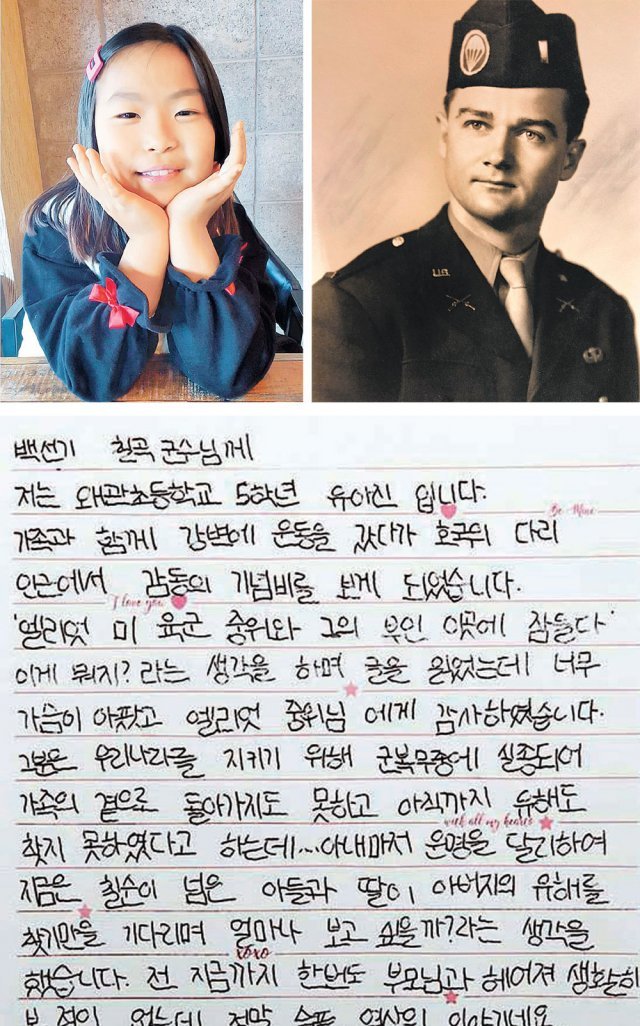 U.S.
백선기 칠곡 군수님께
저는 왜관초등학교 5학년 유아진 입니다.
Be Mine
가족과 함께 강변에 운동을 갔다가 호국의 다리
인근에서 감동의 기념비를 보게 되었습니다.
I love you
'엘리엇 미 육군 중위와 그의 부인 이곳에 잠들다'
이게 뭐지? 라는 생각을 하며 글을 읽었는데 너무
가슴이 아팠고 엘리엇 중위님 에게 감사하였습니다.
그분은 우리나라를 지키기 위해 군복무중에 실종되어
가족의 곁으로 돌아가지도 못하고 아직까지 유해도
with all my hearts
찾지 못하였다고 하는데...아내마저 운명을 달리하여
지금은 칠순이 넘은 아들과 딸이 아버지의 유해를
찾기만을 기다리며 얼마나 보고 싶을까?라는 생각을
xoxo
했습니다. 전 지금까지 한번도 부모님과 헤어져 생활해
본 적이 없는데 정말 슬픈 역사의 이야기네요